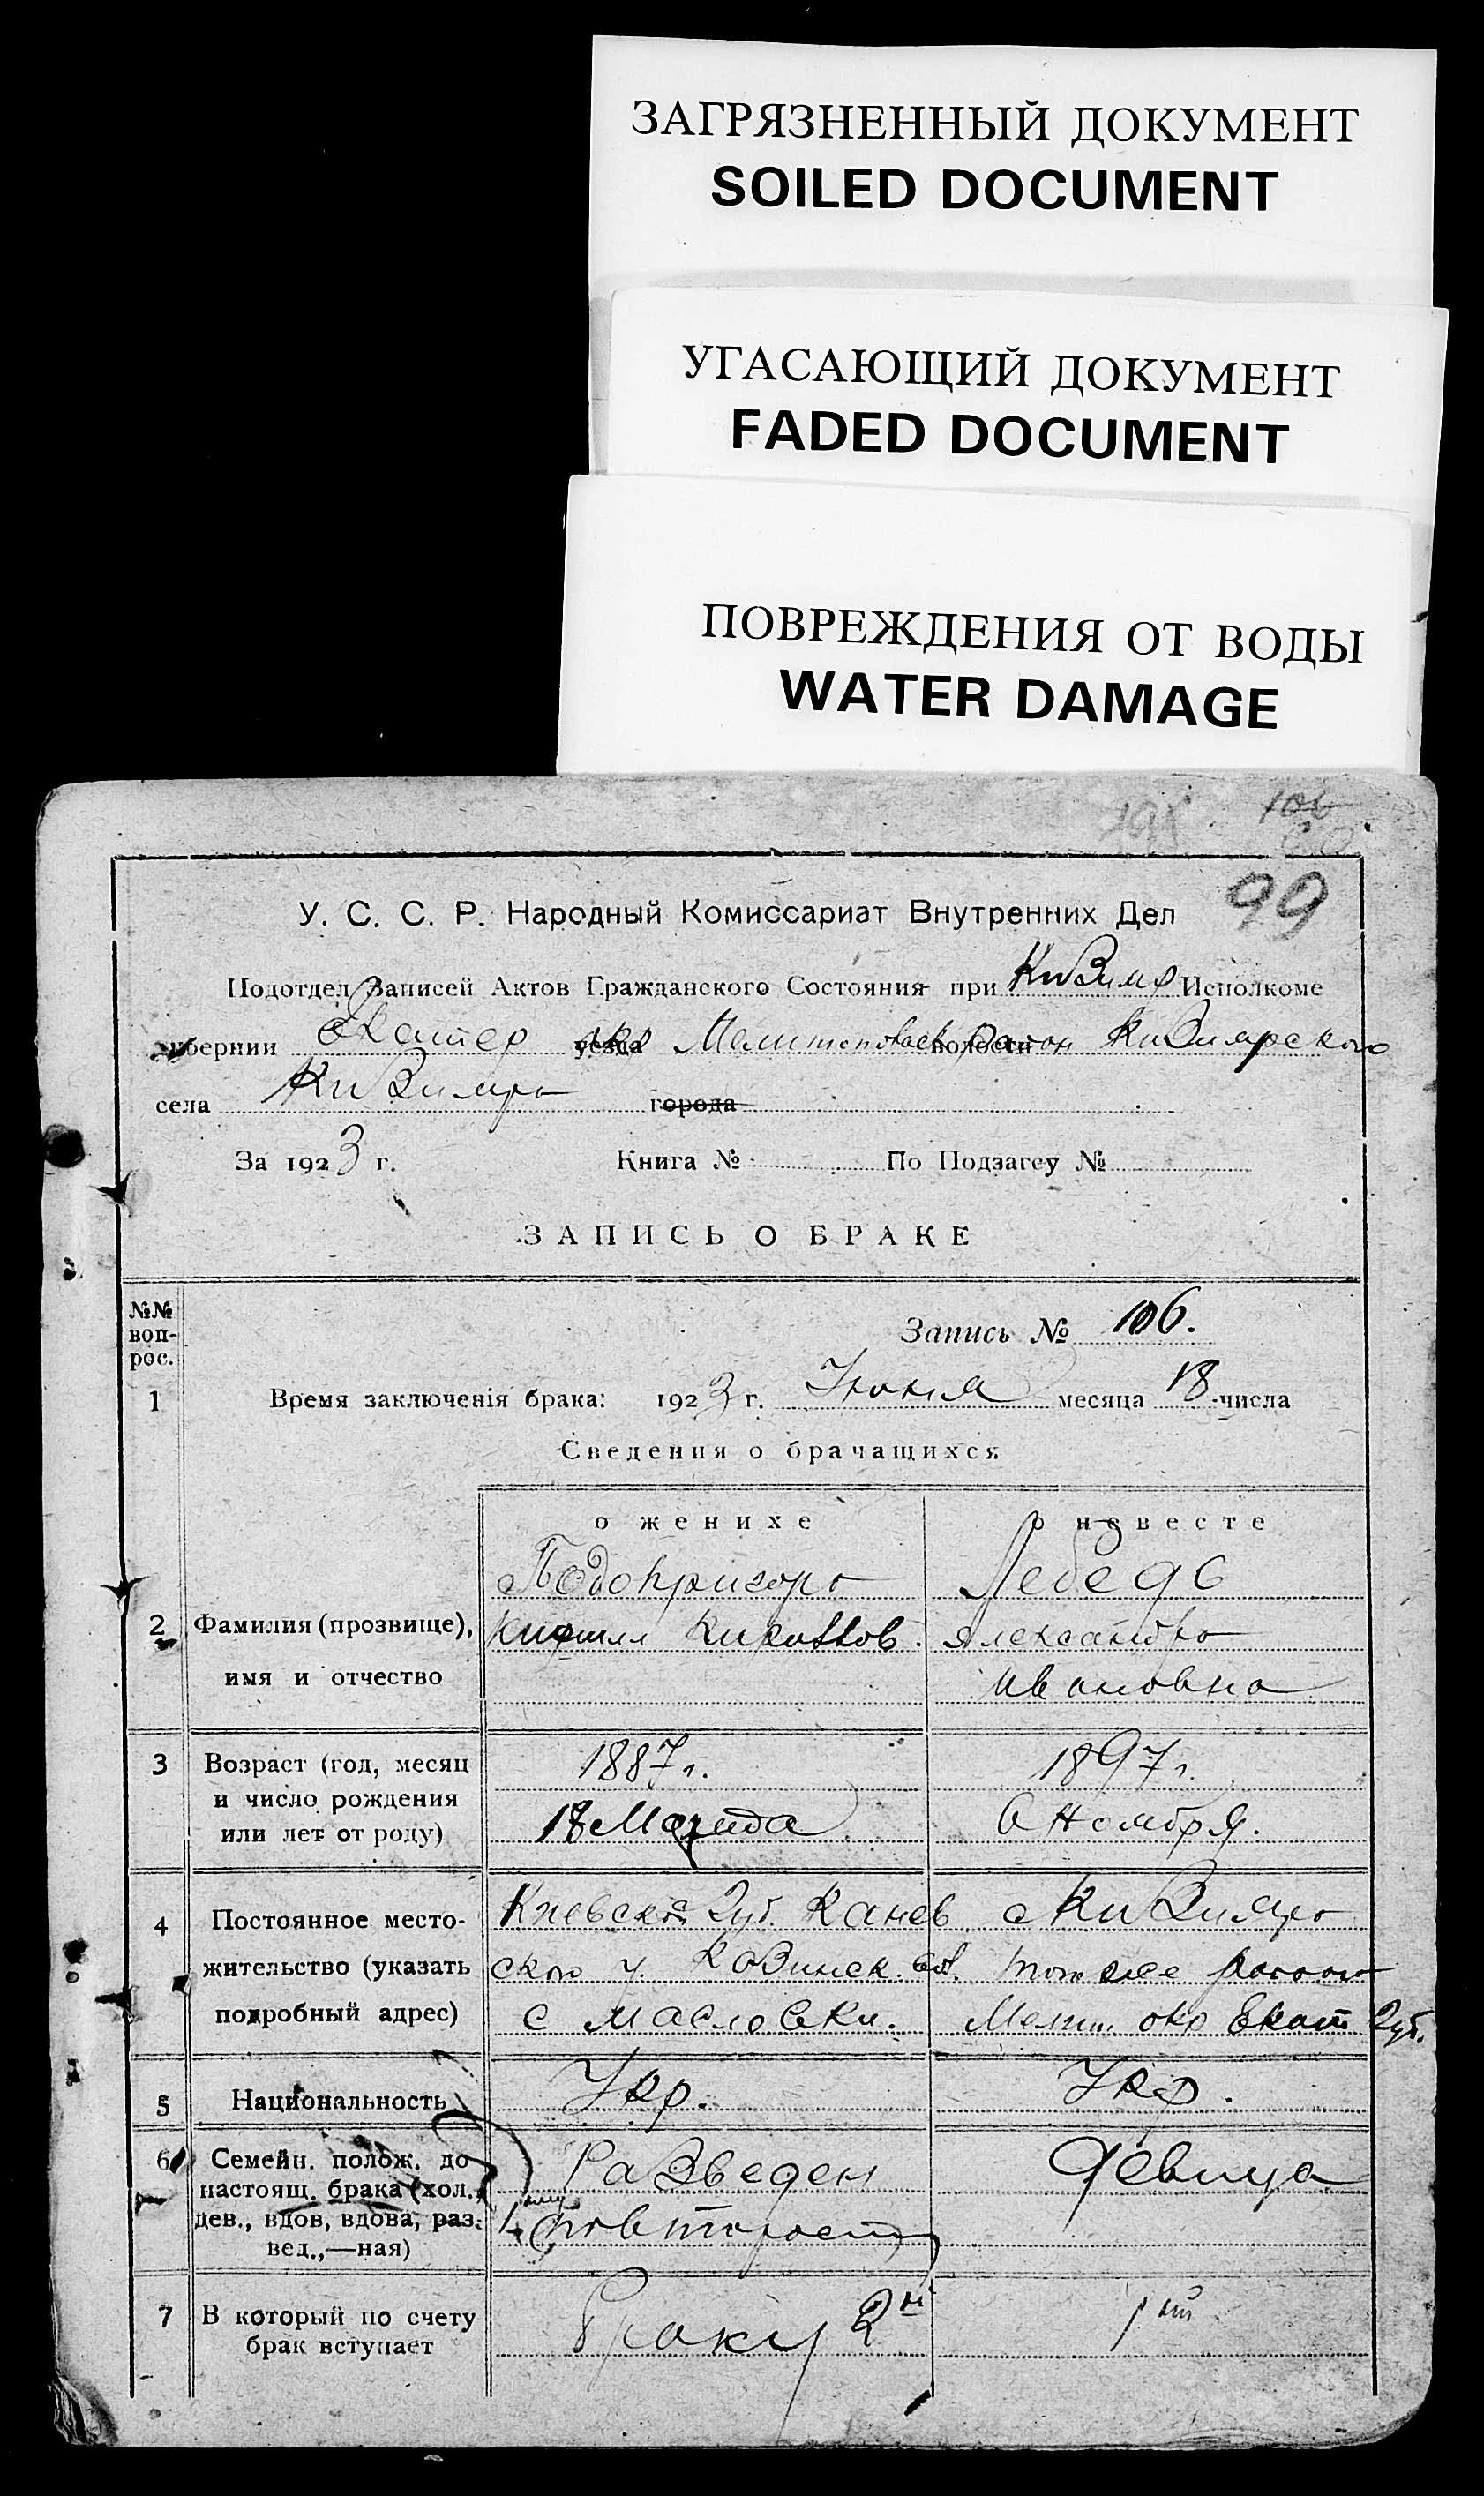 ЗАГРЯЗНЕННЫЙ ДОКУМЕНТ
SOILED DOCUMENT
УГАСАЮЩИЙ ДОКУМЕНТ
FADED DOCUMENT
ПОВРЕЖДЕНИЯ ОТ ВОДЫ
WATER DAMAGE
195 106
99
У. С. С. Р. Народный Комиссариат Внутренних Дел
Подотдел Записей Актов Гражданского Состояния при Кизияр Исполкоме
губернии Екатер уезда окр Мелитопольск волости район Кизиярского
села Кизияра города
За 1923 г. Книга № По Подзагсу №
ЗАПИСЬ О БРАКЕ
№№ воп-рос.
Запись № 106.
1 Время заключенія брака: 1923 г. Июня месяца 18 числа
Сведения о брачащихся
о женихе о невесте
Подопригора Лебедь
2 Фамилия (прозвище), Александра
имя и отчество Ивановна
3 Возраст (год, месяц 1887 г. 1897 г.
и число рождения
или лет от роду) 18 Марта 6 Ноября.
4 Постоянное место- Киевской Губ. Канев с Кизияра
жительство (указать ского у. того же района
подробный адрес) с Масловки. Мелит. окр Екат Губ.
5 Национальность Укр. Укр.
6 Семейн. полож. до Разведен девица
настоящ. брака (хол.,
дев., вдов, вдова, раз-
вед.,—ная)
7 В который по счету браку 2й 1ый
брак вступает